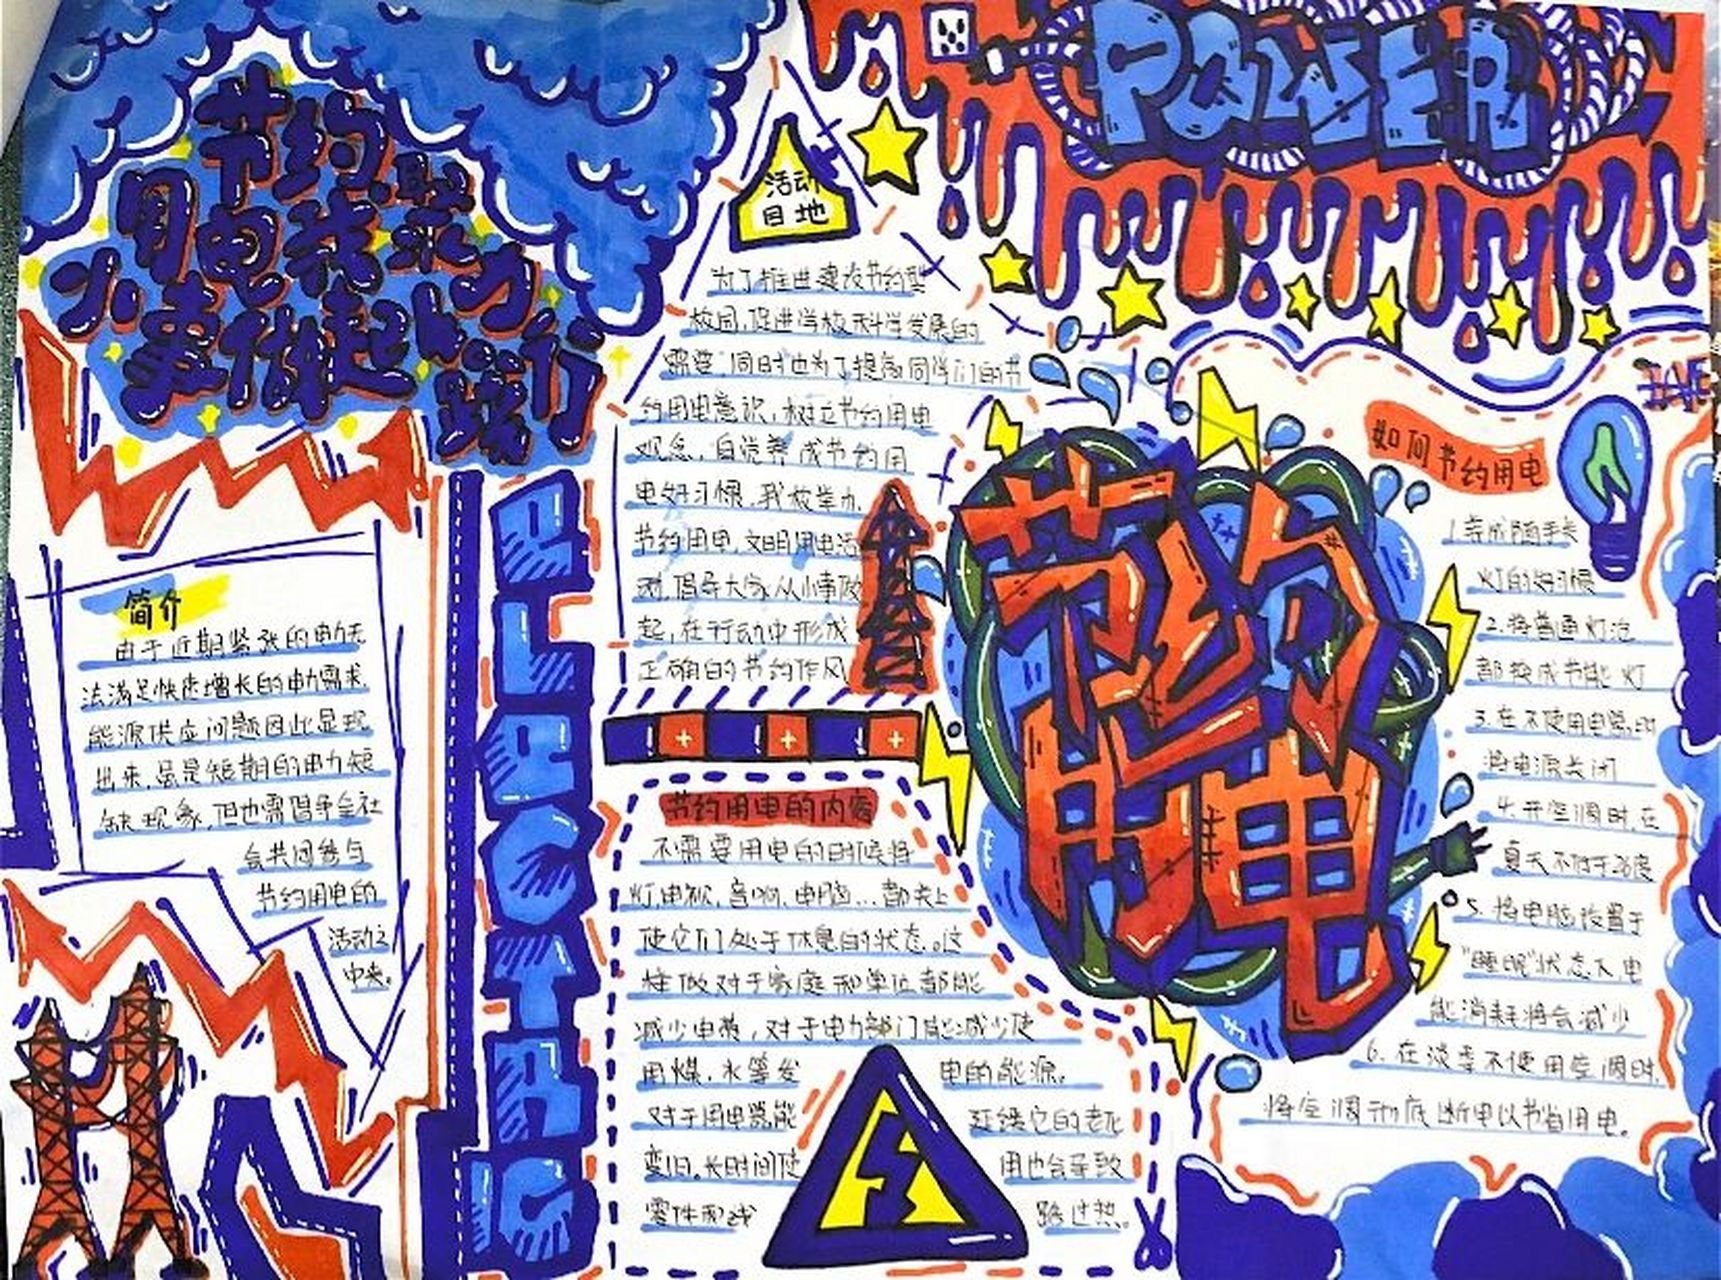 节约用电我最行
小事做起
POWER
活动
目地
为了推进建设节约型
校园,促进学校科学发展的
需要,同时也为了提高同学们的节
约用电意识,树立节约用电
观念,自觉养成节约用
电好习惯,我校举办
节约用电,文明用电活
动,倡导大家从小事做
起,在行动中形成
正确的节约作风
简介
由于近期紧张的电力无
法满足快速增长的电力需求,
能源供应问题因此显现
出来,虽是短期的电力短
缺现象,但也需倡导全社
会共同参与
节约用电的
活动之
中来。
ELECTRIC
节约用电的内容
不需要用电的时候将
灯,电视,音响,电脑...都关上
使它们处于休息的状态。这
样做对于家庭和单位都能
减少电费,对于电力部门能减少使
用煤,水等发电的能源。
对于用电器能延缓它的老化
变旧,长时间使用也会导致
零件 路过热。
节约
用电
如何节约用电
1.养成随手关
灯的好习惯
2.将普通灯泡
都换成节能灯
3.在不使用电器时
将电源关闭
4.开空调时,在
夏天不低于26度
5.将电脑设置于
“睡眠”状态下,电
能消耗将会减少
6.在淡季不使用空调时,
将空调彻底断电以节省用电。